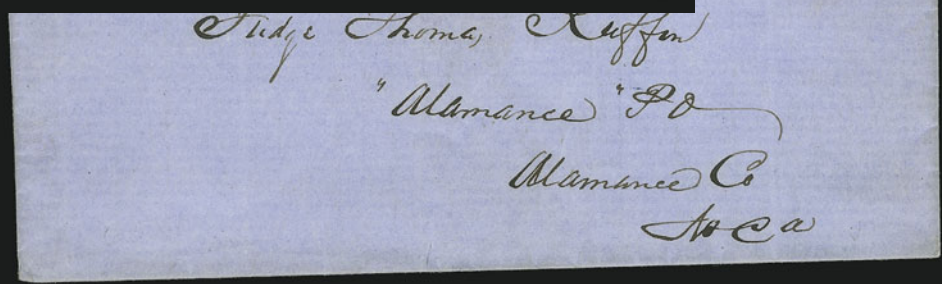 Judge Thomas Ruffin
"Alamance" PO
Alamance Co
No Ca